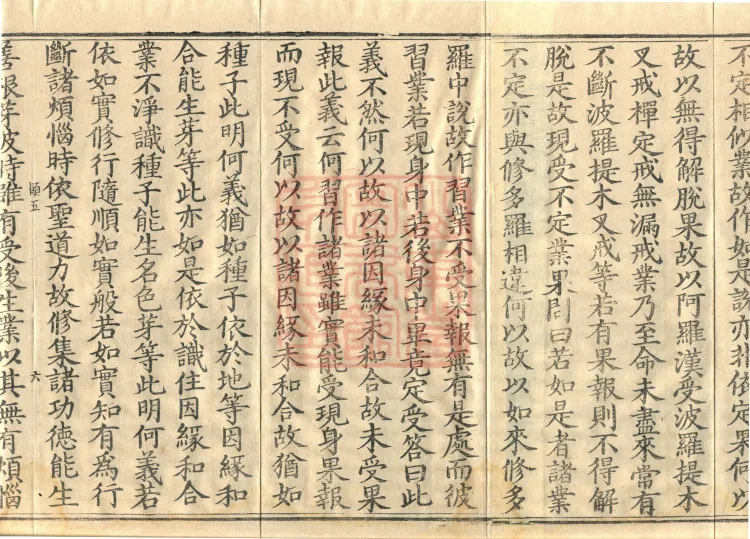 不定相似業故作如是說亦非依定果何以
故以無得解脫果故以阿羅漢受波羅提木
叉戒禪定戒無漏戒業乃至命未盡來常有
不斷波羅提木叉戒等若有果報則不得解
脫是故現受不定業果問曰若如是者諸業
不定亦與修多羅相違何以故以如來修多
羅中說故作習業不受果報無有是處而彼
習業若現身中若後身中畢竟定受答曰此
義不然何以故以諸因緣未和合故未受果
報此義云何習作諸業雖實能受現身果報
而現不受何以故以諸因緣未和合故猶如
種子此明何義猶如種子依於地等因緣和
合能生芽等此亦如是依於識住因緣和合
業不淨識種子能生名色芽等此明何義若
依如實修行隨順如實般若如實知有為行
斷諸煩惱時依聖道力故修集諸功德能生
五 六
善根芽彼時雖有受後生業以其無有煩惱